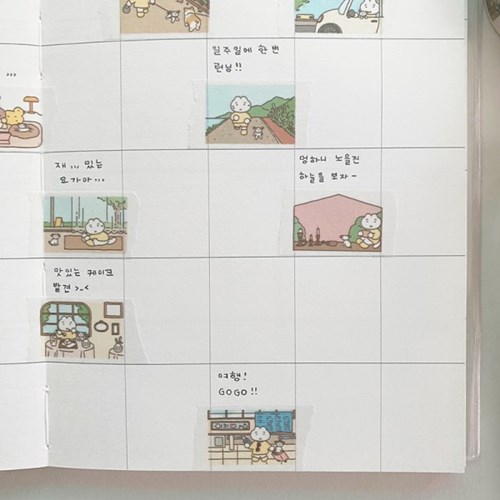 일주일에 한 번
런닝!!
...
재... 밌는
요가아...
멍하니 노을진
하늘을 보자~
맛있는 케이크
발견 >_<
여행!
GOGO!!